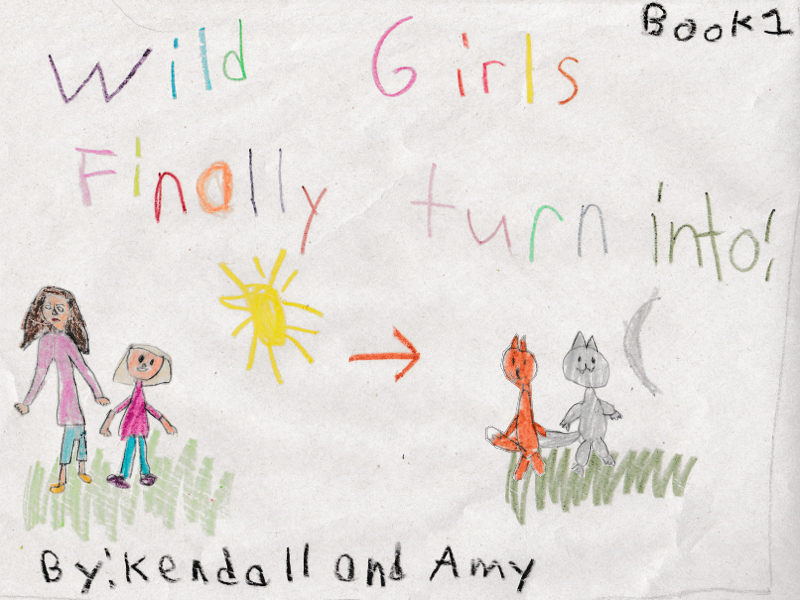 Book 1
Wild Girls
Finally turn into!
By: Kendall and Amy